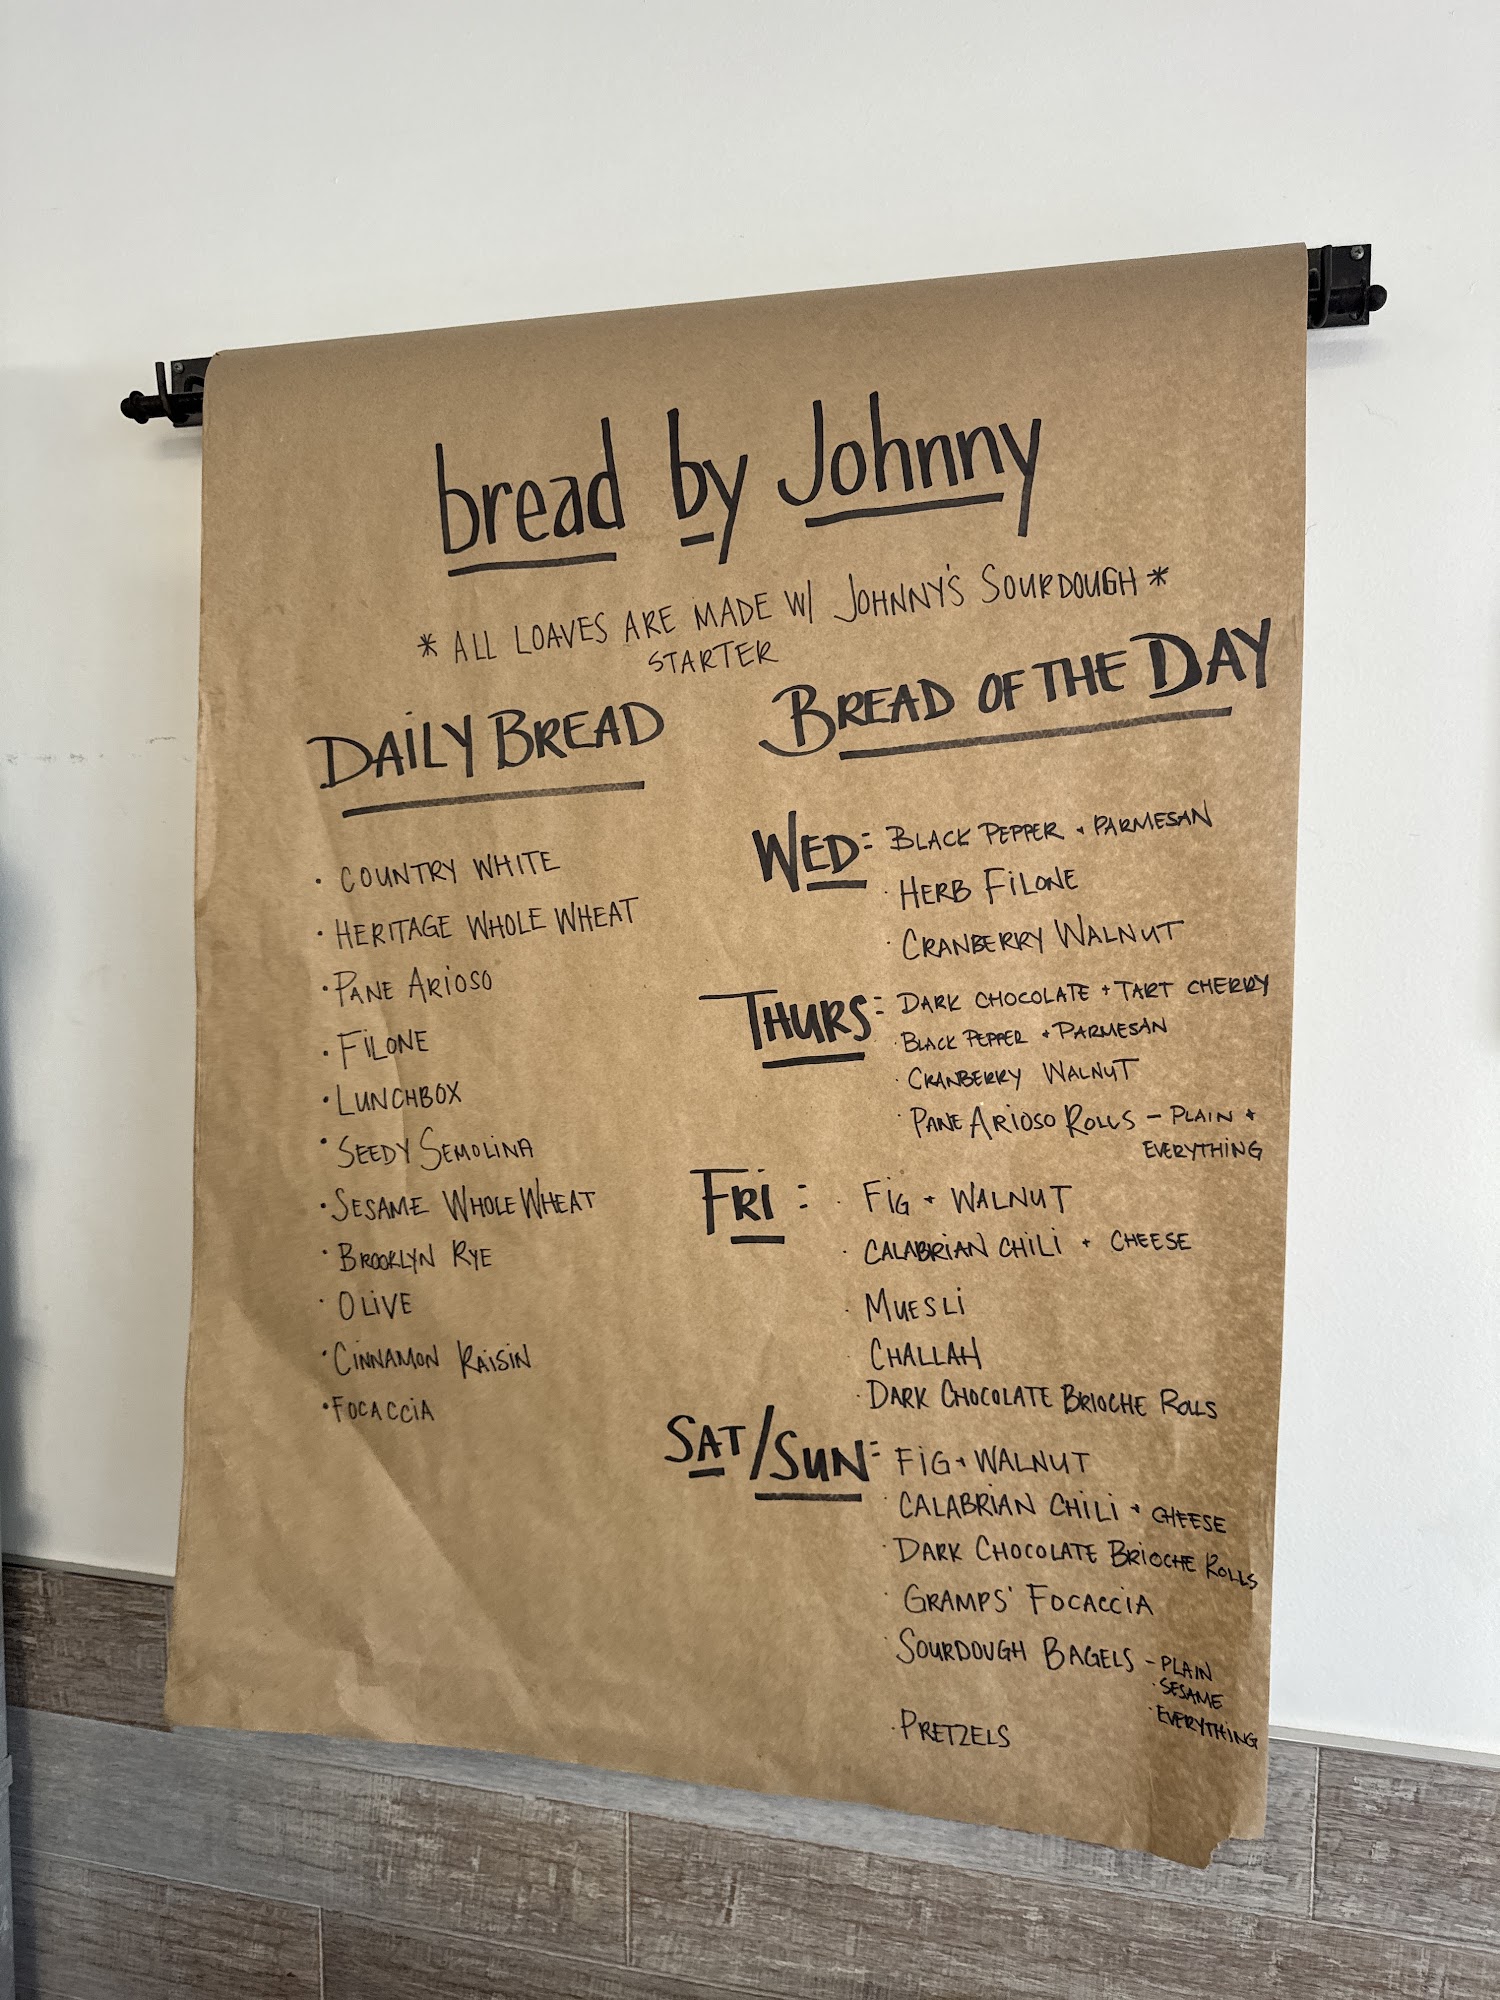 bread by Johnny
* ALL LOAVES ARE MADE W/ JOHNNY'S SOURDOUGH *
STARTER
DAILY BREAD
· COUNTRY WHITE
· HERITAGE WHOLE WHEAT
· PANE ARIOSO
· FILONE
· LUNCHBOX
· SEEDY SEMOLINA
· SESAME WHOLE WHEAT
· BROOKLYN RYE
· OLIVE
· CINNAMON RAISIN
· FOCACCIA
BREAD OF THE DAY
WED: BLACK PEPPER + PARMESAN
· HERB FILONE
· CRANBERRY WALNUT
THURS: DARK CHOCOLATE + TART CHERRY
· BLACK PEPPER + PARMESAN
· CRANBERRY WALNUT
· PANE ARIOSO ROLLS - PLAIN +
EVERYTHING
FRI: · FIG + WALNUT
· CALABRIAN CHILI + CHEESE
· MUESLI
· CHALLAH
· DARK CHOCOLATE BRIOCHE ROLLS
SAT/SUN: FIG + WALNUT
· CALABRIAN CHILI + CHEESE
· DARK CHOCOLATE BRIOCHE ROLLS
· GRAMPS' FOCACCIA
· SOURDOUGH BAGELS - PLAIN
· SESAME
· EVERYTHING
· PRETZELS